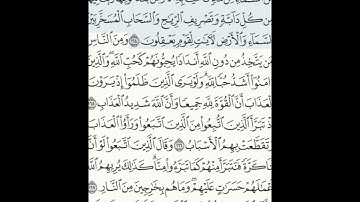 مِن كُلِّ دَآبَّةٍ وَتَصْرِيفِ ٱلرِّيَٰحِ وَٱلسَّحَابِ ٱلْمُسَخَّرِ بَيْنَ
ٱلسَّمَآءِ وَٱلْأَرْضِ لَءَايَٰتٍ لِّقَوْمٍ يَعْقِلُونَ ١٦٤ وَمِنَ ٱلنَّاسِ
مَن يَتَّخِذُ مِن دُونِ ٱللَّهِ أَندَادًا يُحِبُّونَهُمْ كَحُبِّ ٱللَّهِ وَٱلَّذِينَ
ءَامَنُوٓا۟ أَشَدُّ حُبًّا لِّلَّهِ وَلَوْ يَرَى ٱلَّذِينَ ظَلَمُوٓا۟ إِذْ يَرَوْنَ
ٱلْعَذَابَ أَنَّ ٱلْقُوَّةَ لِلَّهِ جَمِيعًا وَأَنَّ ٱللَّهَ شَدِيدُ ٱلْعَذَابِ ١٦٥
إِذْ تَبَرَّأَ ٱلَّذِينَ ٱتُّبِعُوا۟ مِنَ ٱلَّذِينَ ٱتَّبَعُوا۟ وَرَأَوُا۟ ٱلْعَذَابَ
وَتَقَطَّعَتْ بِهِمُ ٱلْأَسْبَابُ ١٦٦ وَقَالَ ٱلَّذِينَ ٱتَّبَعُوا۟ لَوْ أَنَّ
لَنَا كَرَّةً فَنَتَبَرَّأَ مِنْهُمْ كَمَا تَبَرَّءُوا۟ مِنَّا كَذَٰلِكَ يُرِيهِمُ ٱللَّهُ
أَعْمَٰلَهُمْ حَسَرَٰتٍ عَلَيْهِمْ وَمَا هُم بِخَٰرِجِينَ مِنَ ٱلنَّارِ ١٦٧